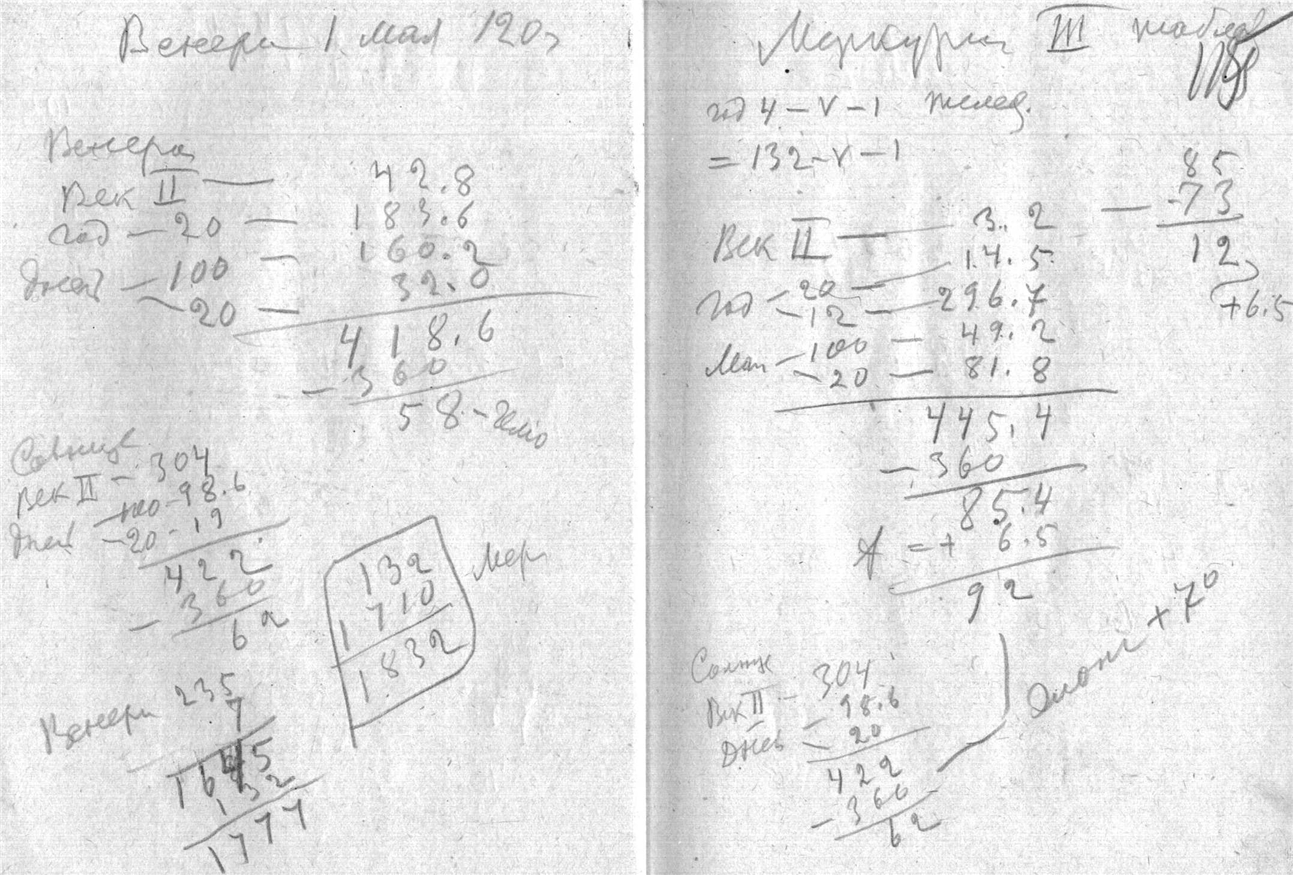 Венера 1 мая 120
Венера
Век II — 42.8
год — 20 — 183.6
дней — 100 — 160.2
— 20 — 32.0
418.6
— 360
58 - гелио
Солнце
Век II — 304
дней 100 - 98.6
— 20 - 19
422
— 360
62
132
1710
1832
Мер
Венера 235
7
1645
132
1777
Меркурий III
год 4 — V — 1
= 132 — V — 1
85
— 73
12
+6.5
Век II — 3.2
год — 20 — 14.5
— 12 — 296.7
Мая — 100 — 49.2
— 20 — 81.8
445.4
— 360
85.4
A = + 6.5
92
Солнце
Век II — 304
Дней — 98.6
— 20
422
— 360
62
Элонг +7°